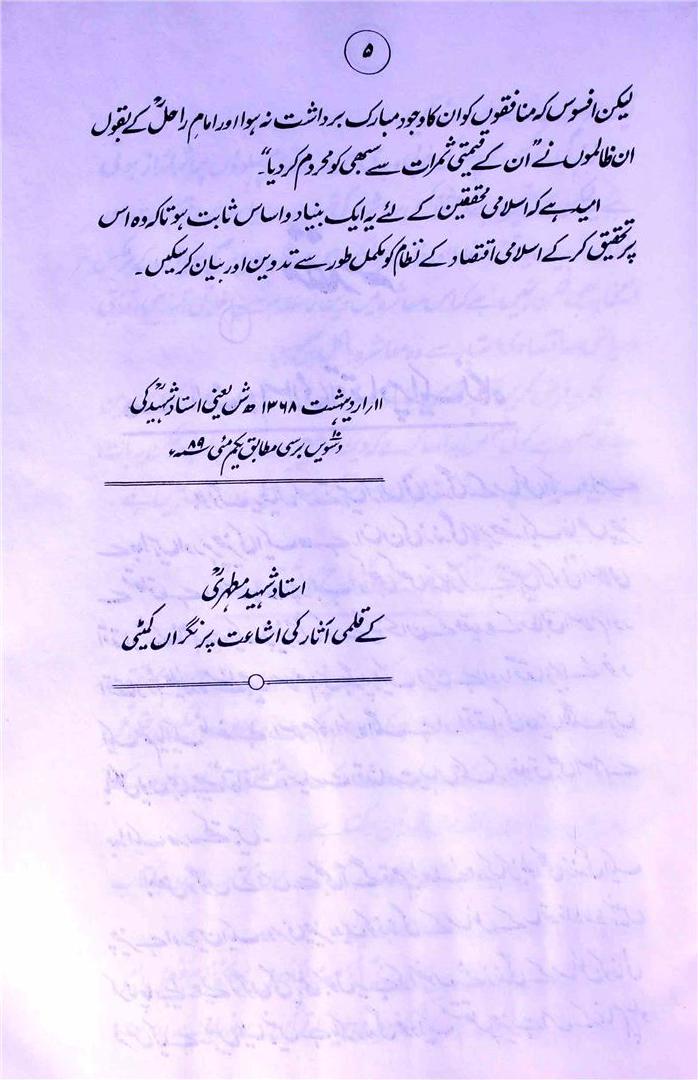 ۵
لیکن افسوس کہ منافقوں کو ان کا وجود مبارک برداشت نہ ہوا اور امام راحلؒ کے بقول
ان ظالموں نے "ان کے قیمتی ثمرات سے سبھی کو محروم کر دیا"۔
امید ہے کہ اسلامی محققین کے لئے یہ ایک بنیاد و اساس ثابت ہو تاکہ وہ اس
پر تحقیق کر کے اسلامی اقتصاد کے نظام کو مکمل طور سے تدوین اور بیان کر سکیں۔
۱۱/اردیبہشت ۱۳۶۸ ھ ش یعنی استاد شہیدؒ کی
دسویں برسی مطابق یکم مئی ۸۹ء
استاد شہید مطہریؒ
کے قلمی آثار کی اشاعت پر نگراں کمیٹی